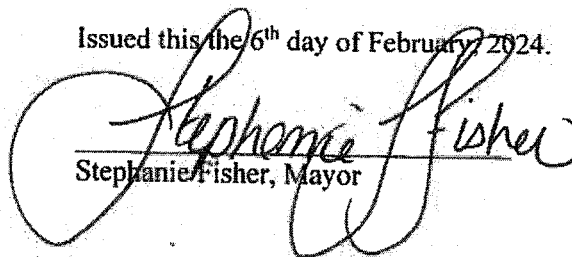 Issued this the 6th day of February, 2024.
Stephanie J Fisher
Stephanie Fisher, Mayor